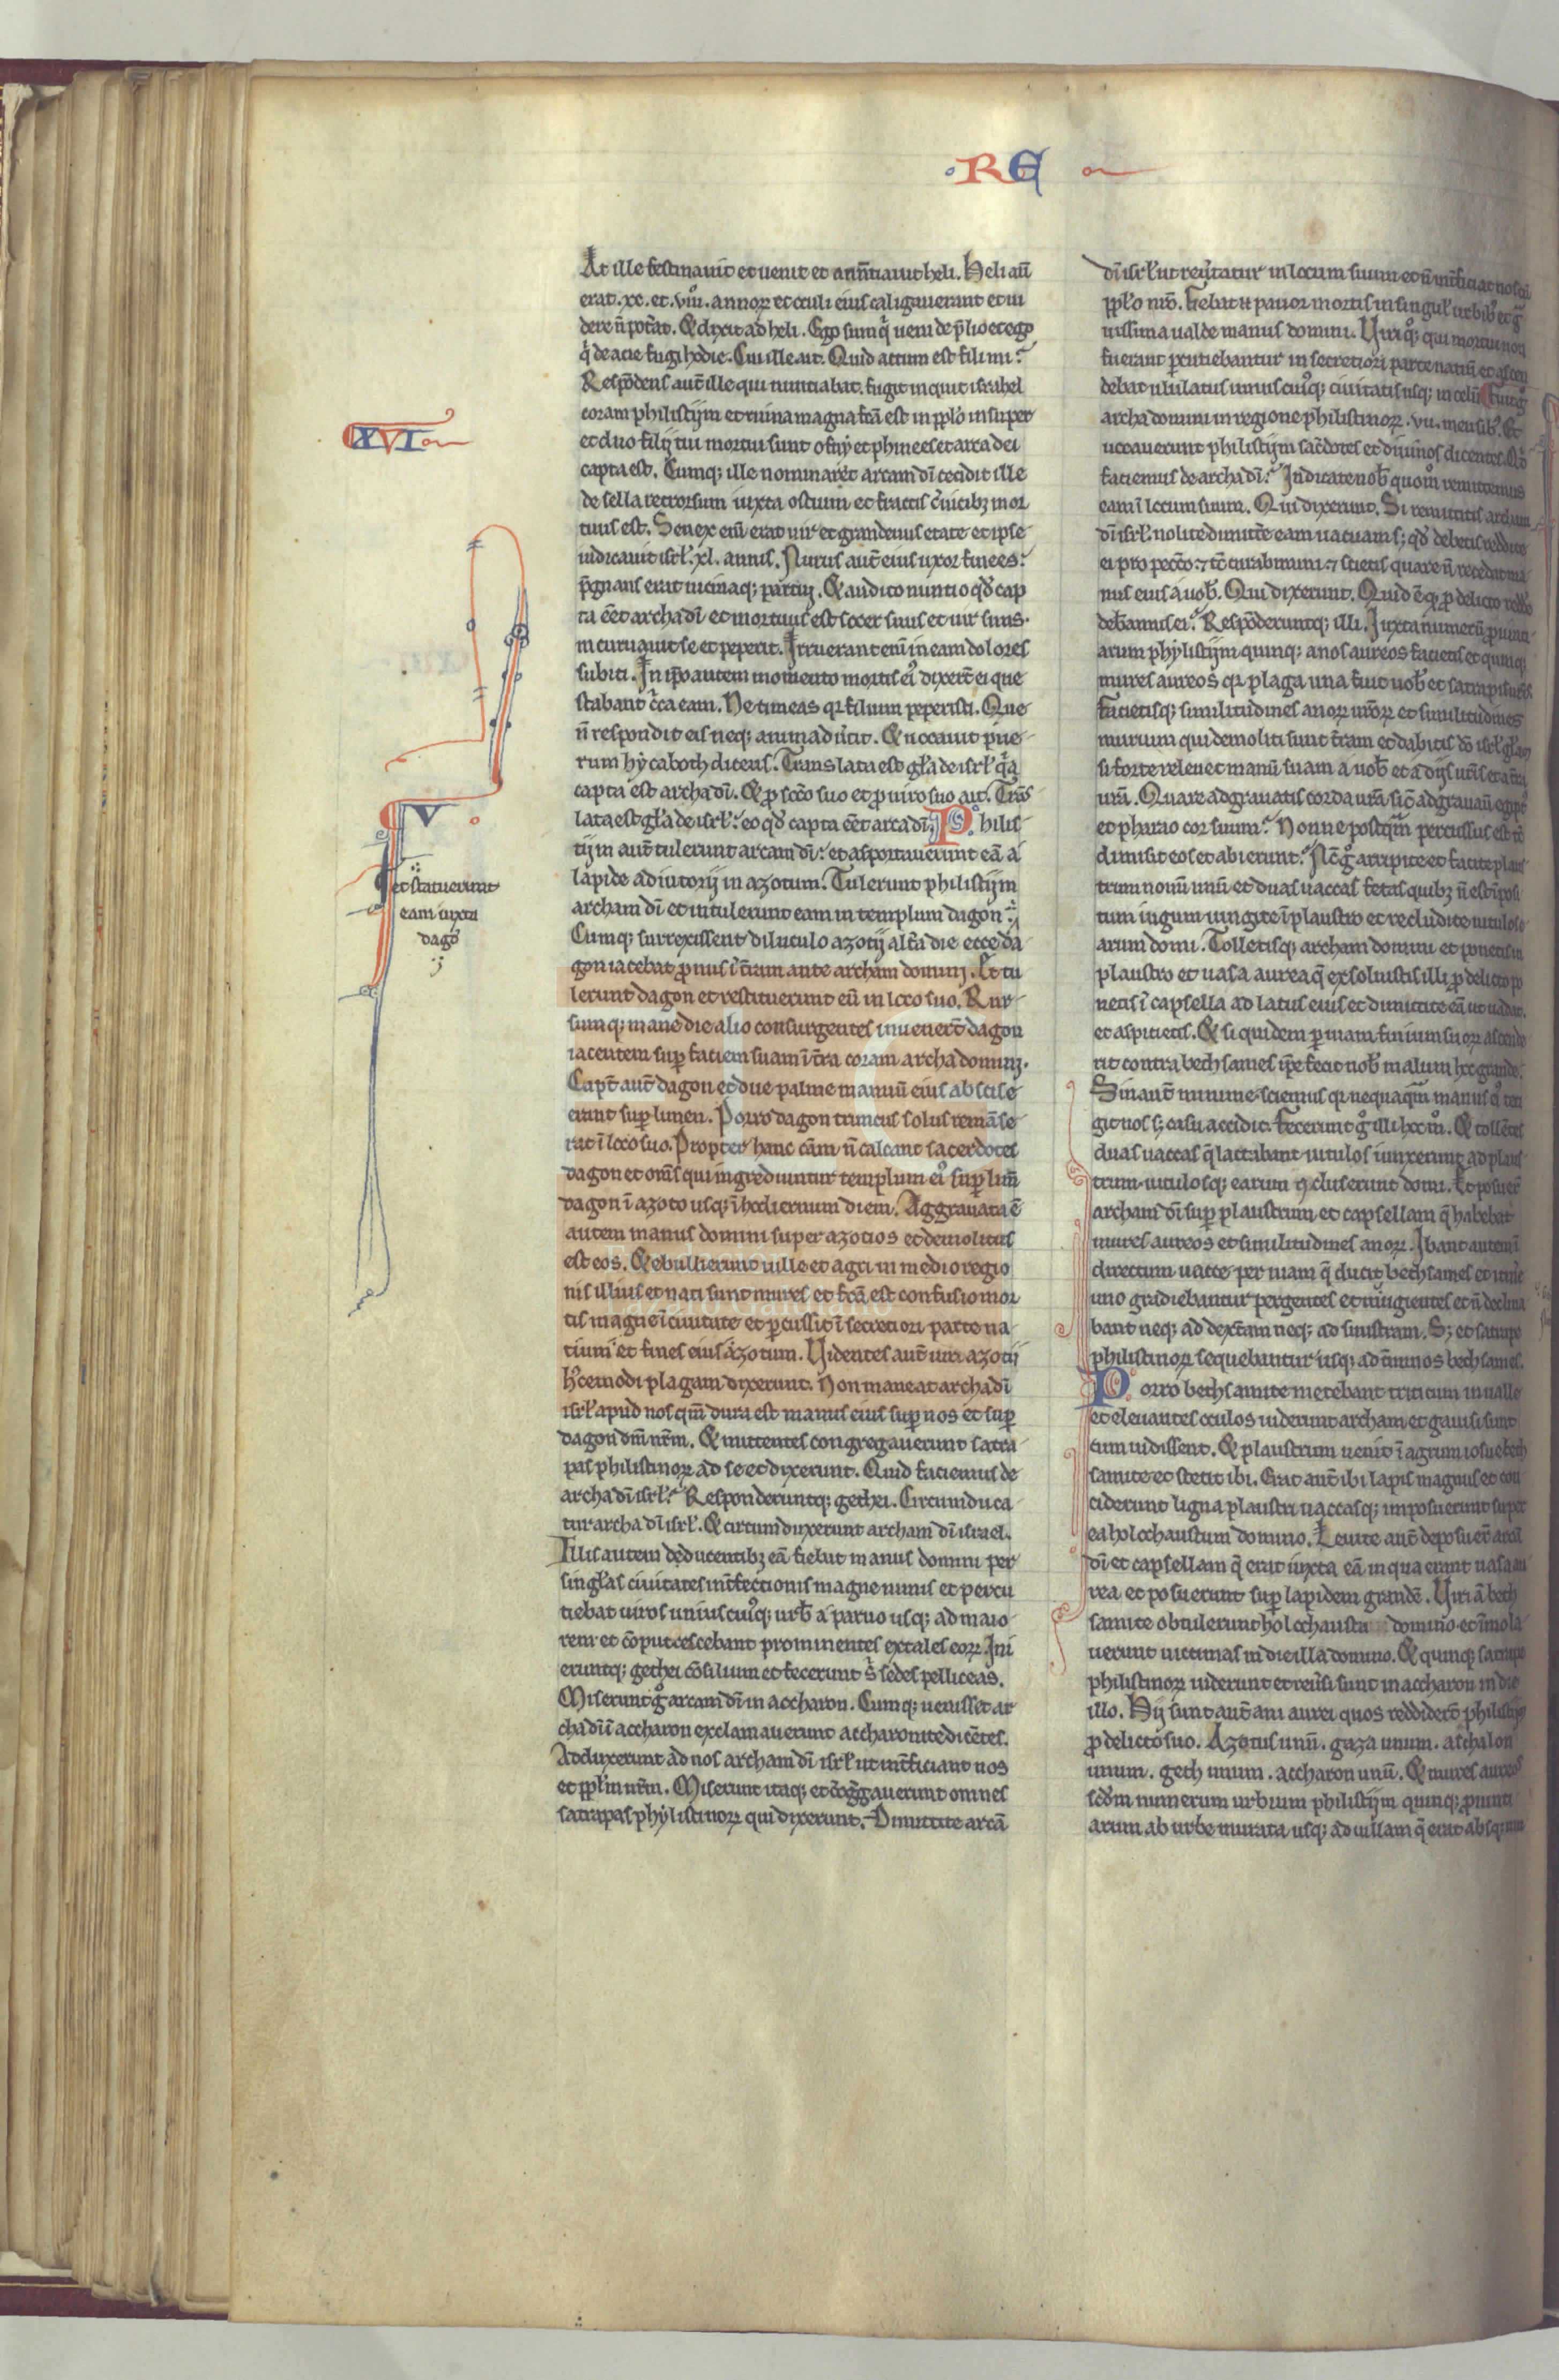 RE
At ille festinauit et uenit et annūtiauit heli. Heli aut̄
erat .xc. et .viii. annoꝝ et oculi eius caligauerant et ui
dere n̄ pot̄at. Et dixit ad heli. Ego sum q̇ ueni de p̄lio et ego
q̇ de acie fugi hodie. Cui ille ait. Quid actum est fili mi?
Respōdens aut̄ ille qui nuntiabat. fugit inquit israhel
coram philistijm et ruina magna fc̄ā est in pplo insuper
et duo filij tui mortui sunt ofny et phinees et arca dei
capta est. Cumq; ille nominaret arcam dī cecidit ille
de sella retrorsum iuxta ostium et fractis c̄uicibꝫ mor
tuus est. Senex eni erat uir et grandeuus etate et ipse
iudicauit isrł .xl. annis. Nurus aut̄ eius uxor finees
p̄gnans erat uicinaq; partui. Et audito nuntio qd̄ cap
ta eēt archa dī et mortuus est socer suus et uir suus.
incuruauit se et peperit. Irruerant eni in eam dolores
subiti. In ipō autem momento mortis ei9 dixer̄t ei que
stabant c̄ca eam. Ne timeas qr filium peperisti. Que
n̄ respondit eis neq; animaduertit. Et uocauit pue
rum hycaboth dicens. Translata est gła de isrł q̇a
capta est archa dī. Et ꝓ socero suo et ꝓ uiro suo ait. Trās
lata est gła de isrł. eo qd̄ capta eēt arca dī. Philis
tijm aut̄ tulerunt arcam dī. et asportauerunt eā a
lapide adiutorij in azotum. Tulerunt philistijm
archam dī et intulerunt eam in templum dagon
Cumq; surrexissent diluculo azotij alt̄a die ecce da
gon iacebat ꝓnus ī t̄ram ante archam domini. Et tu
lerunt dagon et restituerunt eū in loco suo. Rur
sumq; mane die alio consurgentes inuener̄t dagon
iacentem suꝑ faciem suam ī t̄ra coram archa domini.
Caput aut̄ dagon et due palme manuū eius abscise
erant suꝑ limen. Porro dagon truncus solus remāse
rat ī loco suo. Propter hanc cām n̄ calcant sacerdotes
dagon et oms̄ qui ingrediuntur templum ei9 suꝑ limē
dagon ī azoto usq; ī hodiernum diem. Aggrauata ē
autem manus domini super azotios et demolitus
est eos. Et ebullierunt uille et agri in medio regio
nis illius et nati sunt mures et fc̄ā est confusio mor
tis magne ī ciuitate et ꝑcussit ī secretiori parte na
tium et fines eius azotum. Uidentes aut̄ uiri azotij
hōcemodi plagam dixerunt. Non maneat archa dī
isrł apud nos qm̄ dura est manus eius suꝑ nos et suꝑ
dagon dm̄ nr̄m. Et mittentes congregauerunt satra
pas philistinoꝝ ad se et dixerunt. Quid faciemus de
archa dī isrł? Responderuntq; gethei. Circumduca
tur archa dī isrł. Et circumduxerunt archam dī israel.
Illis autem deducentibꝫ eā fiebat manus domini per
singłas ciuitates int̄fectionis magne nimis et percu
tiebat uiros uniuscui9q; urb̄ a paruo usq; ad maio
rem et cōputrescebant prominentes extales eoꝝ. Ini
eruntq; gethei cōsilium et fecerunt s̄ sedes pelliceas.
Miserunt g̊ arcam dī in accharon. Cumq; uenisset ar
cha dī ī accharon exclamauerunt accharonite dicētes.
Adduxerunt ad nos archam dī isrł ut int̄ficiant nos
et ppłm nr̄m. Miserunt itaq; et cōgg̊auerunt omnes
satrapas phylistinoꝝ qui dixerunt. Dimittite arcā
XVI
V
et statuerunt
eam iuxta
dagō
dī isrł ut reūtatur in locum suum et n̄ int̄ficiat nos cū
pplo nr̄o. Fiebat n̄ pauor mortis in singuł urbib; et g̊
uissima ualde manus domini. Uiri q̊q; qui mortui non
fuerant ꝑcutiebantur in secretiori parte natiū et ascen
debat ululatus uniuscui9q; ciuitatis usq; in celū. Fuit g̊
archa domini in regione philistinoꝝ .vii. mensib;. Et
uocauerunt philistijm sac̄dotes et diuinos dicentes. Qd̄
faciemus de archa dī? Indicate nob̄ quom̊ remittemus
eam ī locum suum. Qui dixerunt. Si remittitis archam
dī isrł. nolite dimitt̄e eam uacuam s; qd̄ debetis reddite
ei pro pecc̄o. ⁊ tc̄ curabimini. ⁊ scietis quare n̄ recedat ma
nus eius a uob̄. Qui dixerunt. Quid ē q; ꝓ delicto redd̄e
debeamus ei? Respōderuntq; illi. Iuxta numerū ꝓuinti
arum phylistijm quinq; anos aureos facietis et quinq;
mures aureos qr plaga una fuit uob̄ et satrapis ur̄is.
Facietisq; similitudines anoꝝ ur̄oꝝ et similitudines
murium qui demoliti sunt t̄ram et dabitis dō isrł głam
si forte releuet manū suam a uob̄ et a dijs ur̄is et a t̄ra
ur̄a. Quare adgrauatis corda ur̄a sic̄ adgrauauit egipt9
et pharao cor suum? Nonne postq̄m percussus est tc̄
dimisit eos et abierunt? Nc̄ g̊ arripite et facite plaus
trum nouū unū et duas uaccas fetas quibꝫ n̄ est īposi
tum iugum iungite ī plaustro et recludite uitulos e
arum domi. Tolletisq; archam domini et ponetis in
plaustro et uasa aurea q̄ exsoluistis illi ꝓ delicto po
netis ī capsella ad latus eius et dimittite eā ut uadat.
et aspicietis. Et si quidem ꝑ uiam finium suoꝝ ascende
rit contra bethsames ipē fecit nob̄ malum hoc grande.
Sin aut̄ minime. sciemus qr nequaq̄m manus ei9 teti
git nos s; casu accidit. Fecerunt g̊ illi hoc m̊. Et tollētes
duas uaccas q̄ lactabant uitulos iunxerunt ad plaus
trum. uitulosq; earum ꝯcluserunt domi. Et posuer̄
archam dī suꝑ plaustrum et capsellam q̄ habebat
mures aureos et similitudines anoꝝ. Ibant autem ī
directum uacce per uiam q̄ ducit bethsames et itin̄e
uno gradiebantur pergentes et mugientes et n̄ declina
bant neq; ad dext̄am neq; ad sinistram. S; et satrape
philistinoꝝ sequebantur usq; ad t̄minos bethsames.
Porro bethsamite metebant triticum in ualle
et eleuantes oculos uiderunt archam et gauisi sunt
cum uidissent. Et plaustrum uenit ī agrum iosue beth
samite et stetit ibi. Erat aut̄ ibi lapis magnus et con
ciderunt ligna plaustri uaccasq; imposuerunt super
ea holochaustum domino. Leuite aut̄ deposuer̄ arcā
dī et capsellam q̄ erat iuxta eā in qua erant uasa au
rea et posuerunt suꝑ lapidem grandē. Uiri aut̄ beth
samite obtulerunt holochausta domino. et imola
uerunt uictimas in die illa domino. Et quinq; satrape
philistinoꝝ uiderunt et reūsi sunt in accharon in die
illo. Hij sunt aut̄ ani aurei quos reddider̄t philistijm
ꝓ delicto suo. Azotus unū. gaza unum. aschalon
unum. geth unum. accharon unū. Et mures aureos
scd̄m numerum urbium philistijm quinq; ꝓuinti
arum ab urbe murata usq; ad uillam q̄ erat absq;